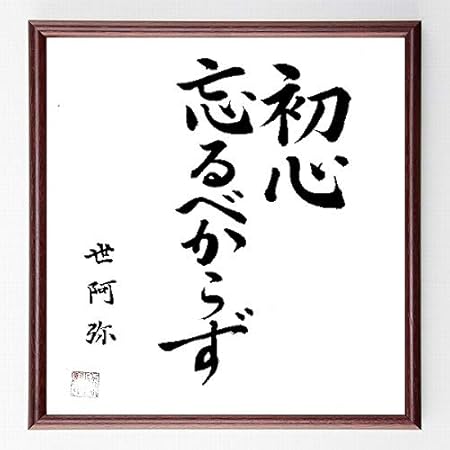 初心
忘るべからず
世阿弥